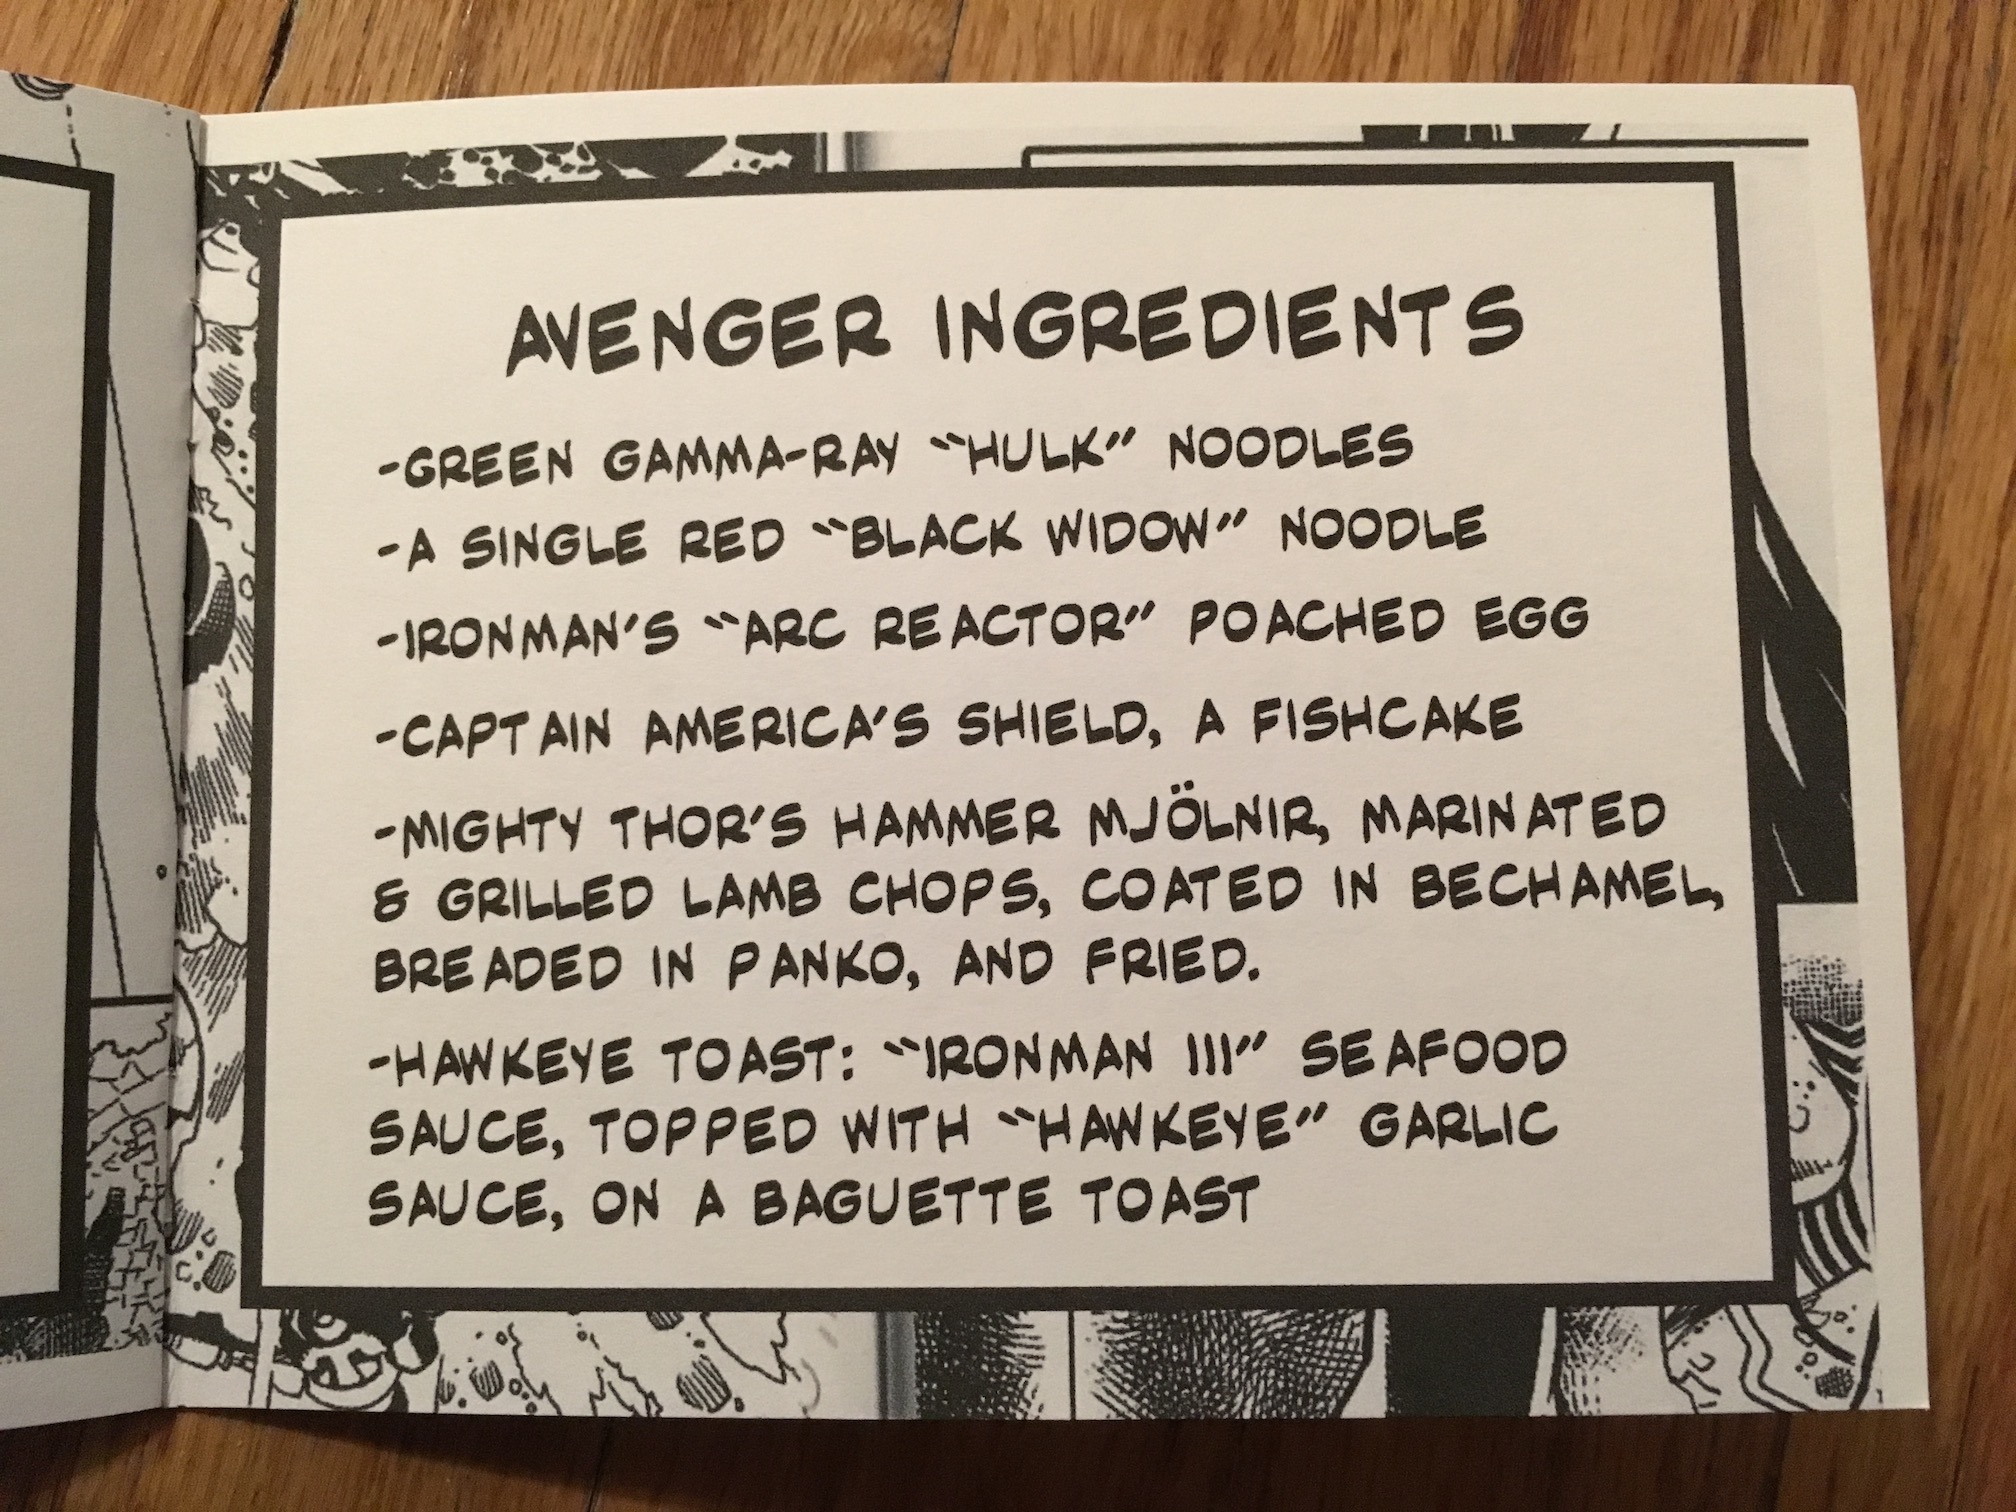 AVENGER INGREDIENTS
-GREEN GAMMA-RAY "HULK" NOODLES
-A SINGLE RED "BLACK WIDOW" NOODLE
-IRONMAN'S "ARC REACTOR" POACHED EGG
-CAPTAIN AMERICA'S SHIELD, A FISHCAKE
-MIGHTY THOR'S HAMMER MJÖLNIR, MARINATED
& GRILLED LAMB CHOPS, COATED IN BECHAMEL,
BREADED IN PANKO, AND FRIED.
-HAWKEYE TOAST: "IRONMAN III" SEAFOOD
SAUCE, TOPPED WITH "HAWKEYE" GARLIC
SAUCE, ON A BAGUETTE TOAST